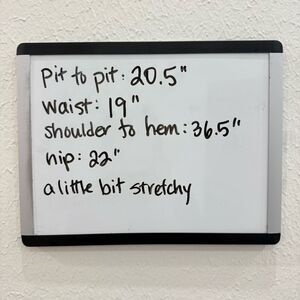 Pit to pit: 20.5"
waist: 19"
shoulder to hem: 36.5"
hip: 22"
a little bit stretchy